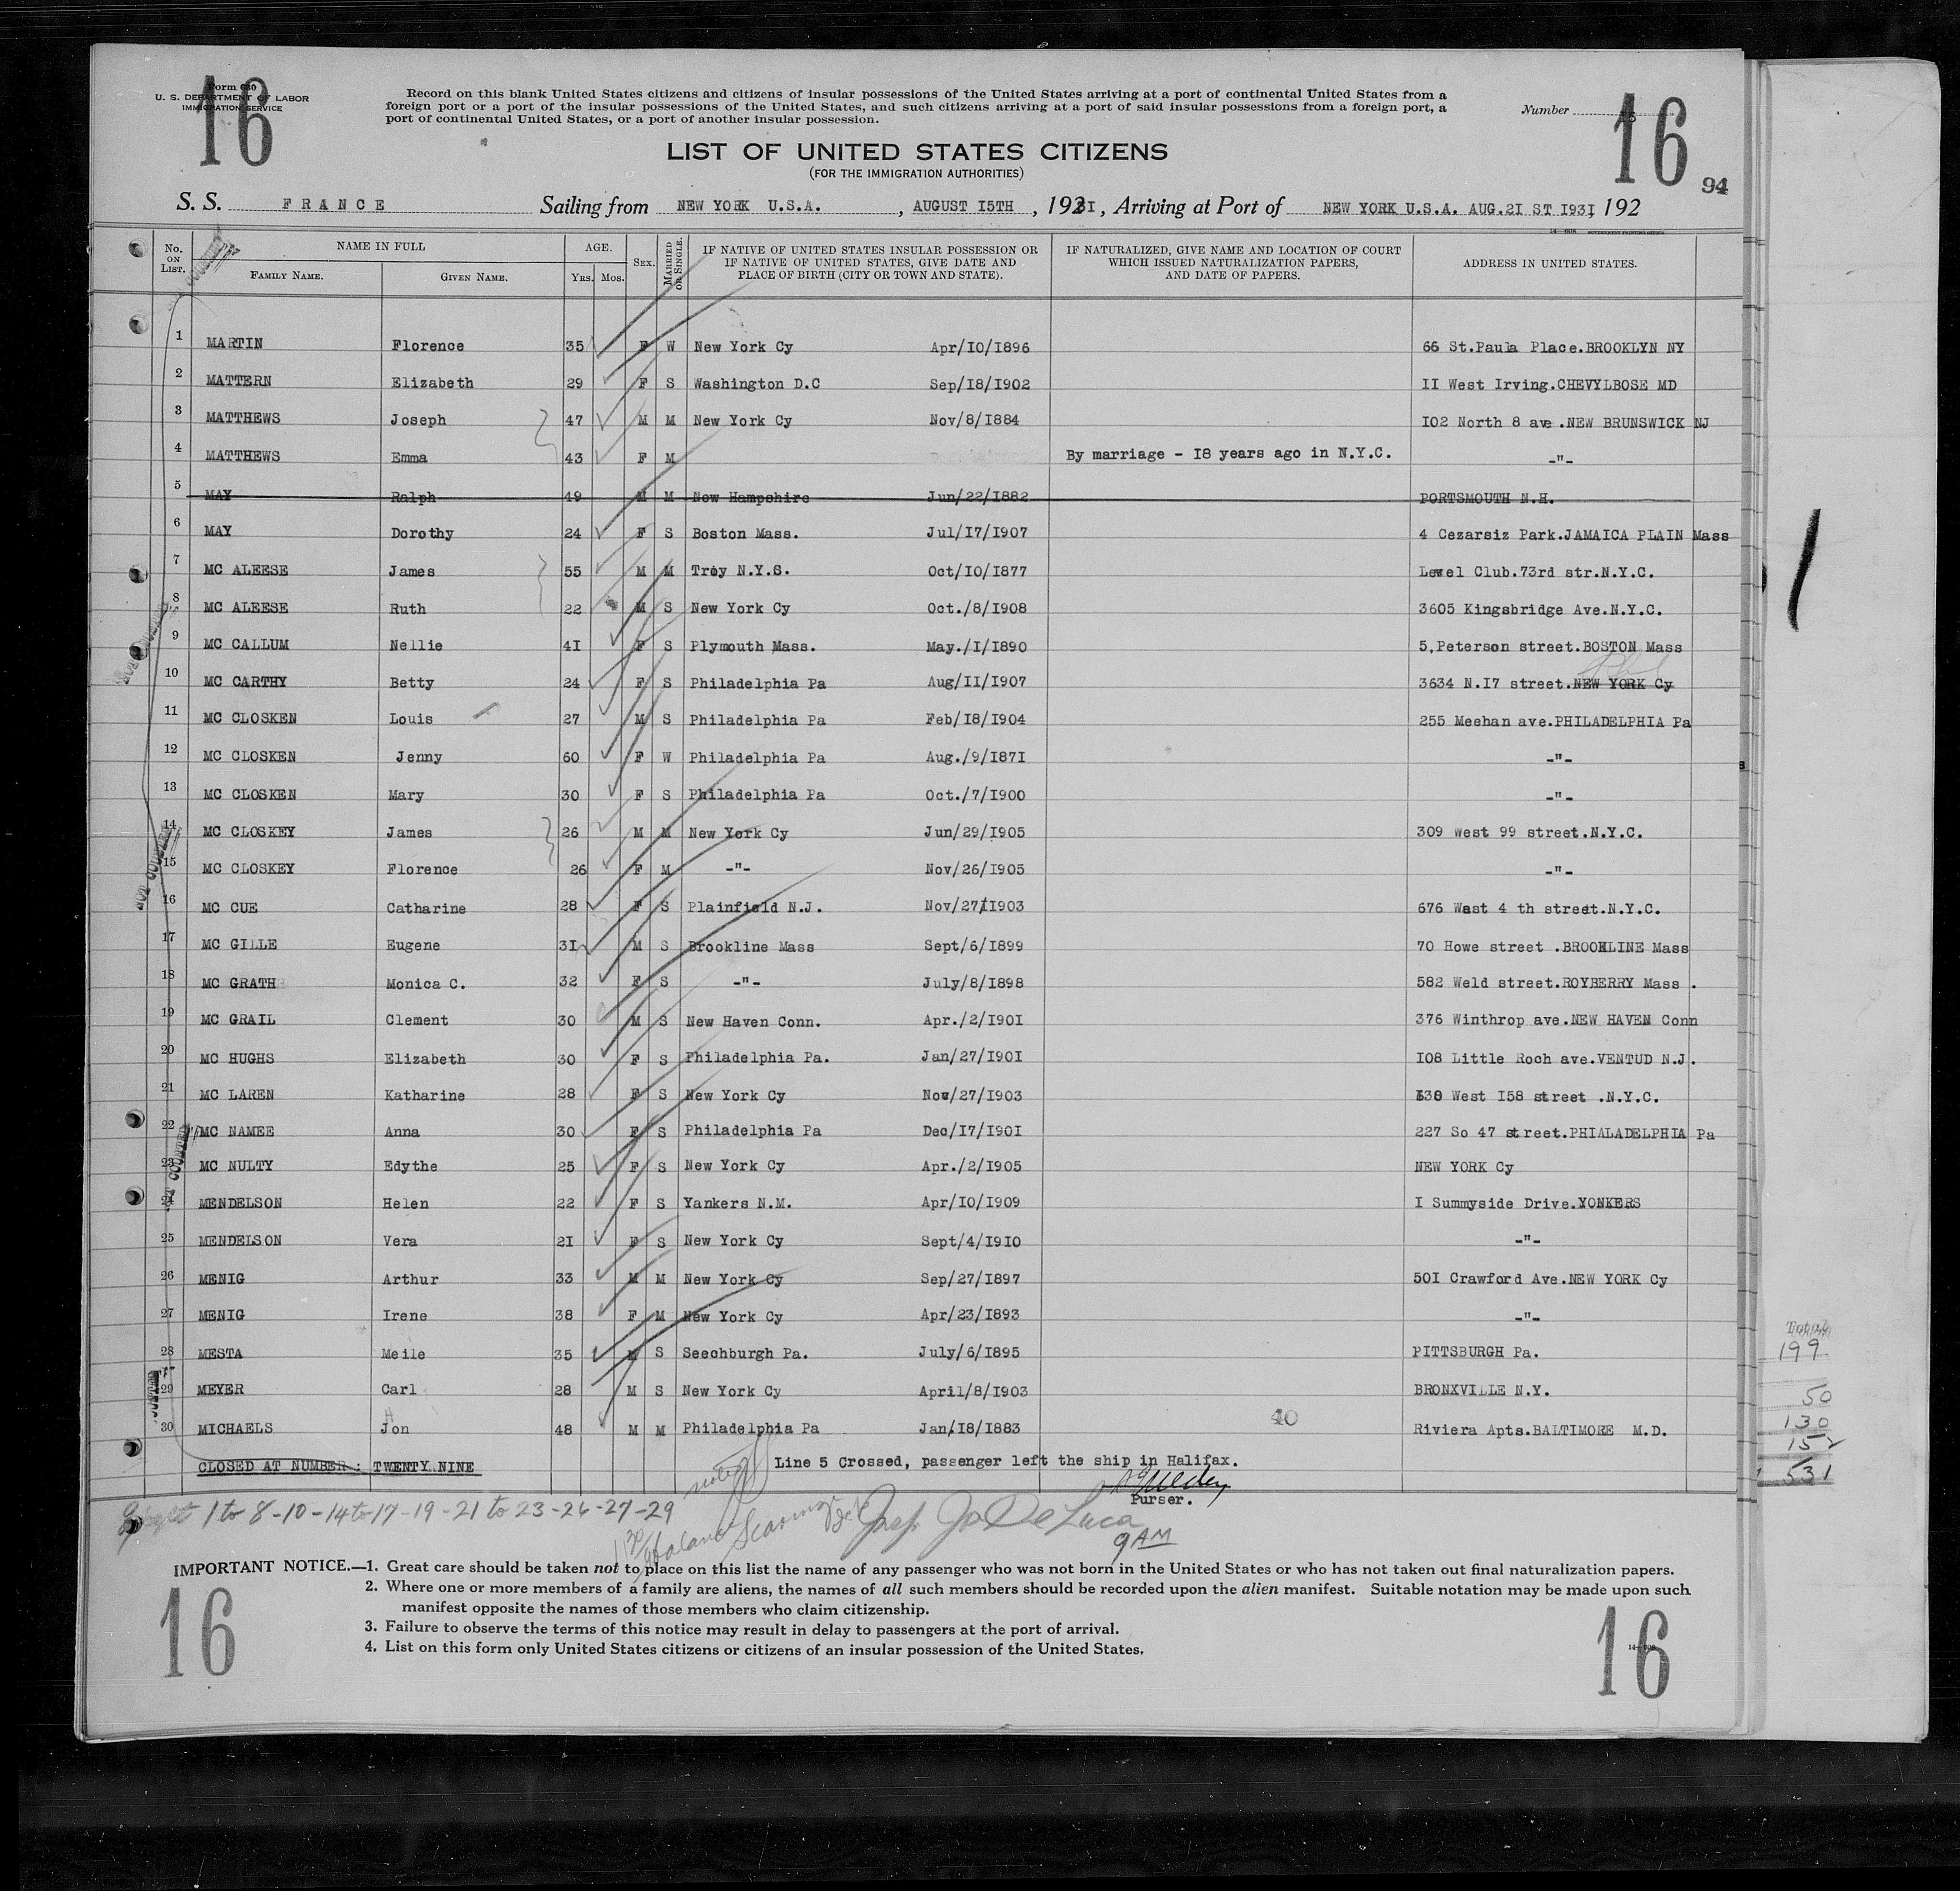 16
Form 630
U. S. DEPARTMENT OF LABOR
IMMIGRATION SERVICE
Record on this blank United States citizens and citizens of insular possessions of the United States arriving at a port of continental United States from a
foreign port or a port of the insular possessions of the United States, and such citizens arriving at a port of said insular possessions from a foreign port, a
port of continental United States, or a port of another insular possession.
Number
16
94
LIST OF UNITED STATES CITIZENS
(FOR THE IMMIGRATION AUTHORITIES)
S. S. FRANCE Sailing from NEW YORK U.S.A. , AUGUST I5TH , 19231 , Arriving at Port of NEW YORK U.S.A. AUG.2I ST I93I, 192
No. ON LIST. NAME IN FULL FAMILY NAME. GIVEN NAME. AGE. Yrs. Mos. SEX. MARRIED OR SINGLE. IF NATIVE OF UNITED STATES INSULAR POSSESSION OR IF NATIVE OF UNITED STATES, GIVE DATE AND PLACE OF BIRTH (CITY OR TOWN AND STATE). IF NATURALIZED, GIVE NAME AND LOCATION OF COURT WHICH ISSUED NATURALIZATION PAPERS, AND DATE OF PAPERS. ADDRESS IN UNITED STATES.
1 MARTIN Florence 35 F W New York Cy Apr/I0/I896 66 St.Paula Place.BROOKLYN NY
2 MATTERN Elizabeth 29 F S Washington D.C Sep/I8/I902 II West Irving.CHEVYLBOSE MD
3 MATTHEWS Joseph 47 M M New York Cy Nov/8/I884 I02 North 8 ave .NEW BRUNSWICK NJ
4 MATTHEWS Emma 43 F M By marriage - I8 years ago in N.Y.C. -"-
5 MAY Ralph 49 M M New Hampshire Jun/22/I882 PORTSMOUTH N.H.
6 MAY Dorothy 24 F S Boston Mass. Jul/I7/I907 4 Cezarsiz Park.JAMAICA PLAIN Mass
7 MC ALEESE James 55 M M Troy N.Y.S. Oct/I0/I877 Lewel Club.73rd str.N.Y.C.
8 MC ALEESE Ruth 22 M S New York Cy Oct./8/I908 3605 Kingsbridge Ave.N.Y.C.
9 MC CALLUM Nellie 4I F S Plymouth Mass. May./I/I890 5,Peterson street.BOSTON Mass
10 MC CARTHY Betty 24 F S Philadelphia Pa Aug/II/I907 3634 N.I7 street.NEW YORK Cy
11 MC CLOSKEN Louis 27 M S Philadelphia Pa Feb/I8/I904 255 Meehan ave.PHILADELPHIA Pa
12 MC CLOSKEN Jenny 60 F W Philadelphia Pa Aug./9/I87I -"-
13 MC CLOSKEN Mary 30 F S Philadelphia Pa Oct./7/I900 -"-
14 MC CLOSKEY James 26 M M New York Cy Jun/29/I905 309 west 99 street.N.Y.C.
15 MC CLOSKEY Florence 26 F M -"- Nov/26/I905 -"-
16 MC CUE Catharine 28 F S Plainfield N.J. Nov/27/I903 676 Wast 4 th street.N.Y.C.
17 MC GILLE Eugene 3I M S Brookline Mass Sept/6/I899 70 Howe street .BROOKLINE Mass
18 MC GRATH Monica C. 32 F S -"- July/8/I898 582 Weld street.ROYBERRY Mass .
19 MC GRAIL Clement 30 M S New Haven Conn. Apr./2/I90I 376 Winthrop ave.NEW HAVEN Conn
20 MC HUGHS Elizabeth 30 F S Philadelphia Pa. Jan/27/I90I I08 Little Roch ave.VENTUD N.J.
21 MC LAREN Katharine 28 F S New York Cy Nov/27/I903 630 West I58 street .N.Y.C.
22 MC NAMEE Anna 30 F S Philadelphia Pa Dec/I7/I90I 227 So 47 street.PHIALADELPHIA Pa
23 MC NULTY Edythe 25 F S New York Cy Apr./2/I905 NEW YORK Cy
24 MENDELSON Helen 22 F S Yankers N.M. Apr/I0/I909 I Summyside Drive.YONKERS
25 MENDELSON Vera 2I F S New York Cy Sept/4/I9I0 -"-
26 MENIG Arthur 33 M M New York Cy Sep/27/I897 50I Crawford Ave.NEW YORK Cy
27 MENIG Irene 38 F M New York Cy Apr/23/I893 -"-
28 MESTA Meile 35 M S Seechburgh Pa. July/6/I895 PITTSBURGH Pa.
29 MEYER Carl 28 M S New York Cy April/8/I903 BRONXVILLE N.Y.
30 MICHAELS Jon 48 M M Philadelphia Pa Jan/I8/I883 40 Riviera Apts.BALTIMORE M.D.
CLOSED AT NUMBER : TWENTY NINE
Line 5 Crossed, passenger left the ship in Halifax.
Purser.
1 to 8-10-14 to 17-19-21 to 23-26-27-29
noted
balance
Insp. Jos De Luca
9 AM
Total
199
50
130
152
531
IMPORTANT NOTICE.—1. Great care should be taken not to place on this list the name of any passenger who was not born in the United States or who has not taken out final naturalization papers.
2. Where one or more members of a family are aliens, the names of all such members should be recorded upon the alien manifest. Suitable notation may be made upon such
manifest opposite the names of those members who claim citizenship.
3. Failure to observe the terms of this notice may result in delay to passengers at the port of arrival.
4. List on this form only United States citizens or citizens of an insular possession of the United States.
16
16